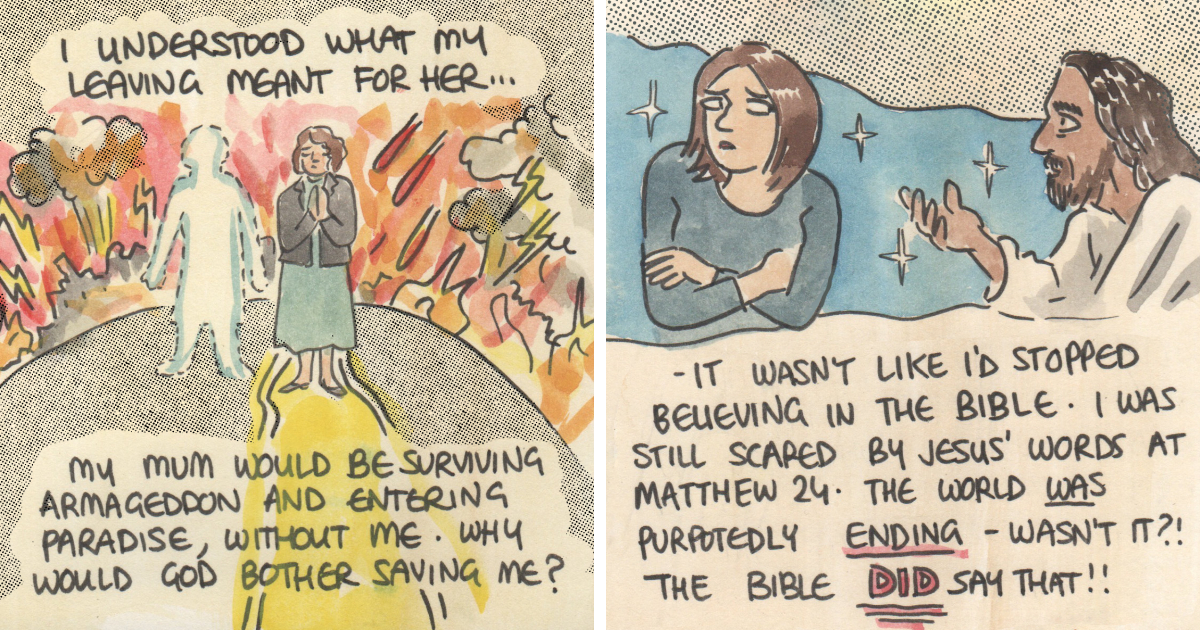 I UNDERSTOOD WHAT MY
LEAVING MEANT FOR HER...
MY MUM WOULD BE SURVIVING
ARMAGEDDON AND ENTERING
PARADISE, WITHOUT ME. WHY
WOULD GOD BOTHER SAVING ME?
-IT WASN'T LIKE I'D STOPPED
BELIEVING IN THE BIBLE. I WAS
STILL SCARED BY JESUS' WORDS AT
MATTHEW 24. THE WORLD WAS
PURPOTEDLY ENDING - WASN'T IT?!
THE BIBLE DID SAY THAT!!